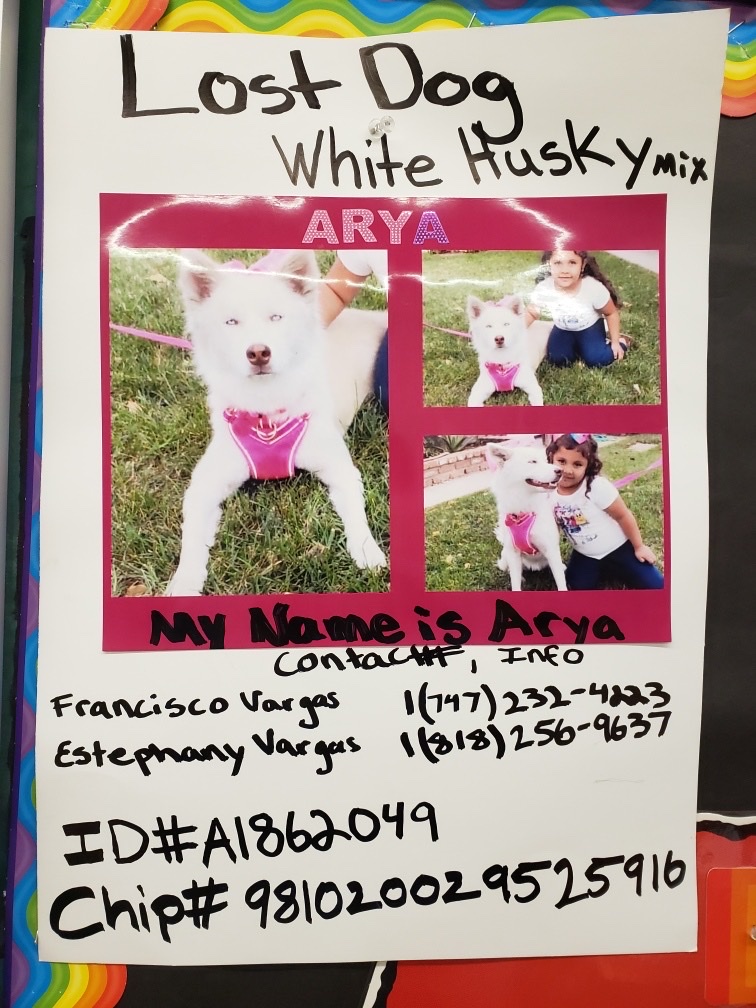 Lost Dog
White Husky mix
ARYA
My Name is Arya
Contact, Info
Francisco Vargas 1(747) 232-4223
Estephany Vargas 1(818) 256-9637
ID#A1862049
Chip# 981020029525916